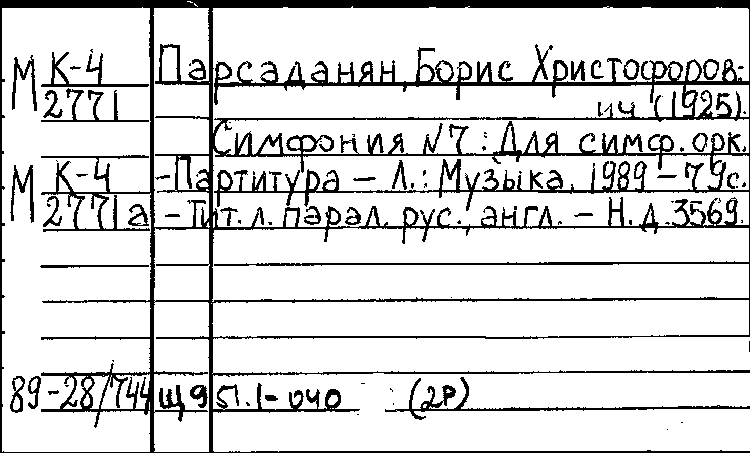 М К-4 Парсаданян, Борис Христофоров-
2771 ич (1925).
Симфония №7 : Для симф. орк.
М К-4 -Партитура – Л.: Музыка, 1989 – 79с.
2771а – Тит. л. парал. рус., англ. – Н. д. 3569.
89-28/744 Щ951.1-040 (2Р)